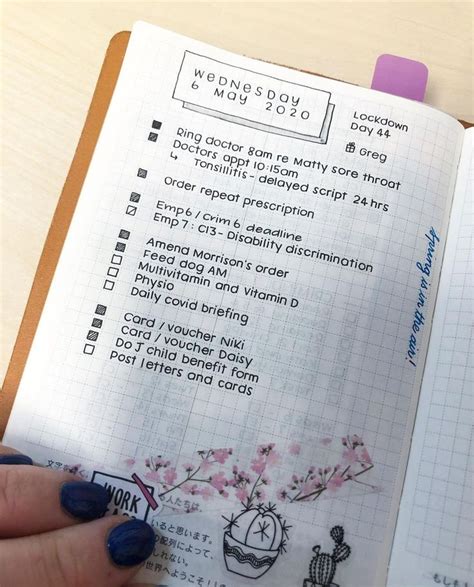 WEDNESDAY
6 MAY 2020
Lockdown
Day 44
Greg
Ring doctor 8am re Matty sore throat
Doctors appt 10:15am
↳ Tonsillitis - delayed script 24 hrs
Order repeat prescription
Emp 6 / Crim 6 deadline
Emp 7 : C13 - Disability discrimination
Amend Morrison's order
Feed dog AM
Multivitamin and Vitamin D
Physio
Daily covid briefing
Card / voucher Niki
Card / voucher Daisy
Do J child benefit form
Post letters and cards
Spring is in the air!
WORK
人たちは、
いると思います。
の配列によって、
しれない。
世界へようこそ!